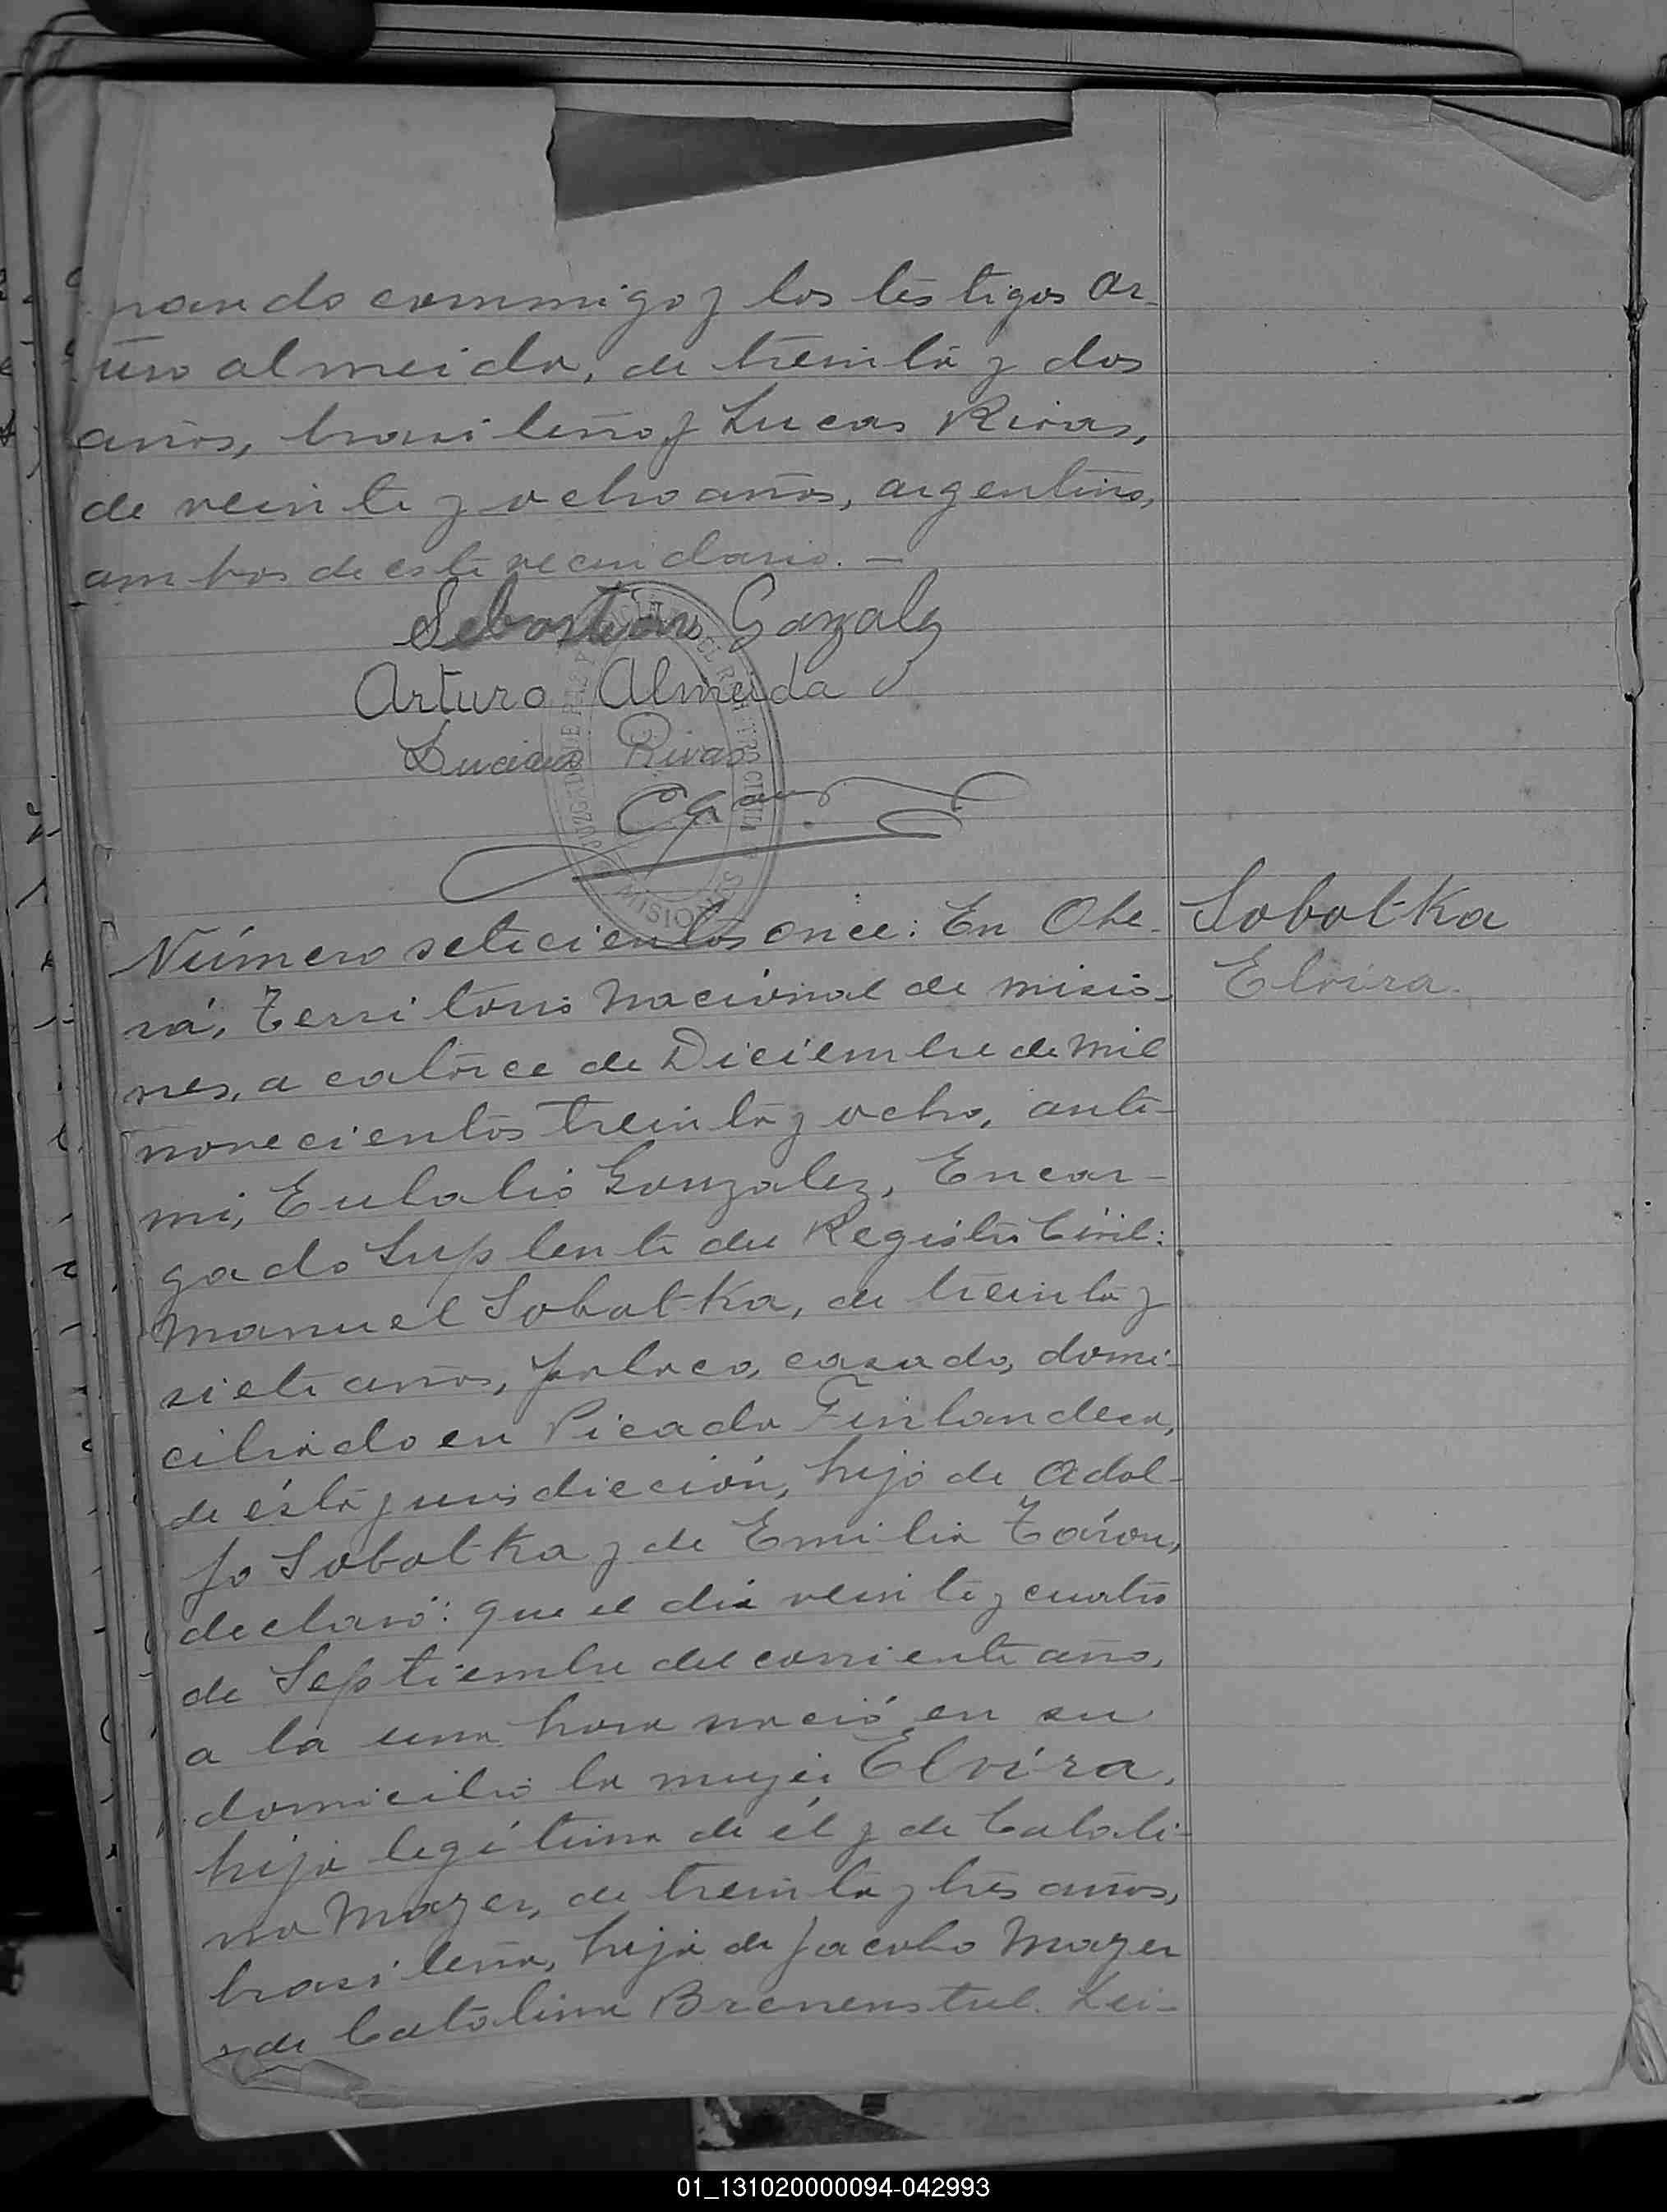 nando conmmigo y los testigos Ar-
turo Almeida, de treinta y dos
años, brasileño y Lucas Rivas,
de veinte y ocho años, argentino,
ambos de este vecindario. —
Sebastian Gonzalez
Arturo Almeida
Lucas Rivas
MISIONES
Número setecientos once: En Obe-
rá, Territorio Nacional de Misio-
nes, a catorce de Diciembre de mil
novecientos treinta y ocho, ante
mi, Eulalio Gonzalez, Encar-
gado Suplente del Registro Civil:
Manuel Sobotka, de treinta y
siete años, polaco, casado, domi-
ciliado en Picada Finlandesa,
de ésta jurisdicción, hijo de Adol-
fo Sobotka y de Emilia
declaró: que el día veinte y cuatro
de Septiembre del corriente año,
a la una hora nació en su
domicilio la mujer Elvira,
hija legítima de él y de Catali-
na Mazer, de treinta y tres años,
brasileña, hija de Jacobo Mazer
y de Catalina Leí-
Sobotka
Elvira.
01_131020000094-042993